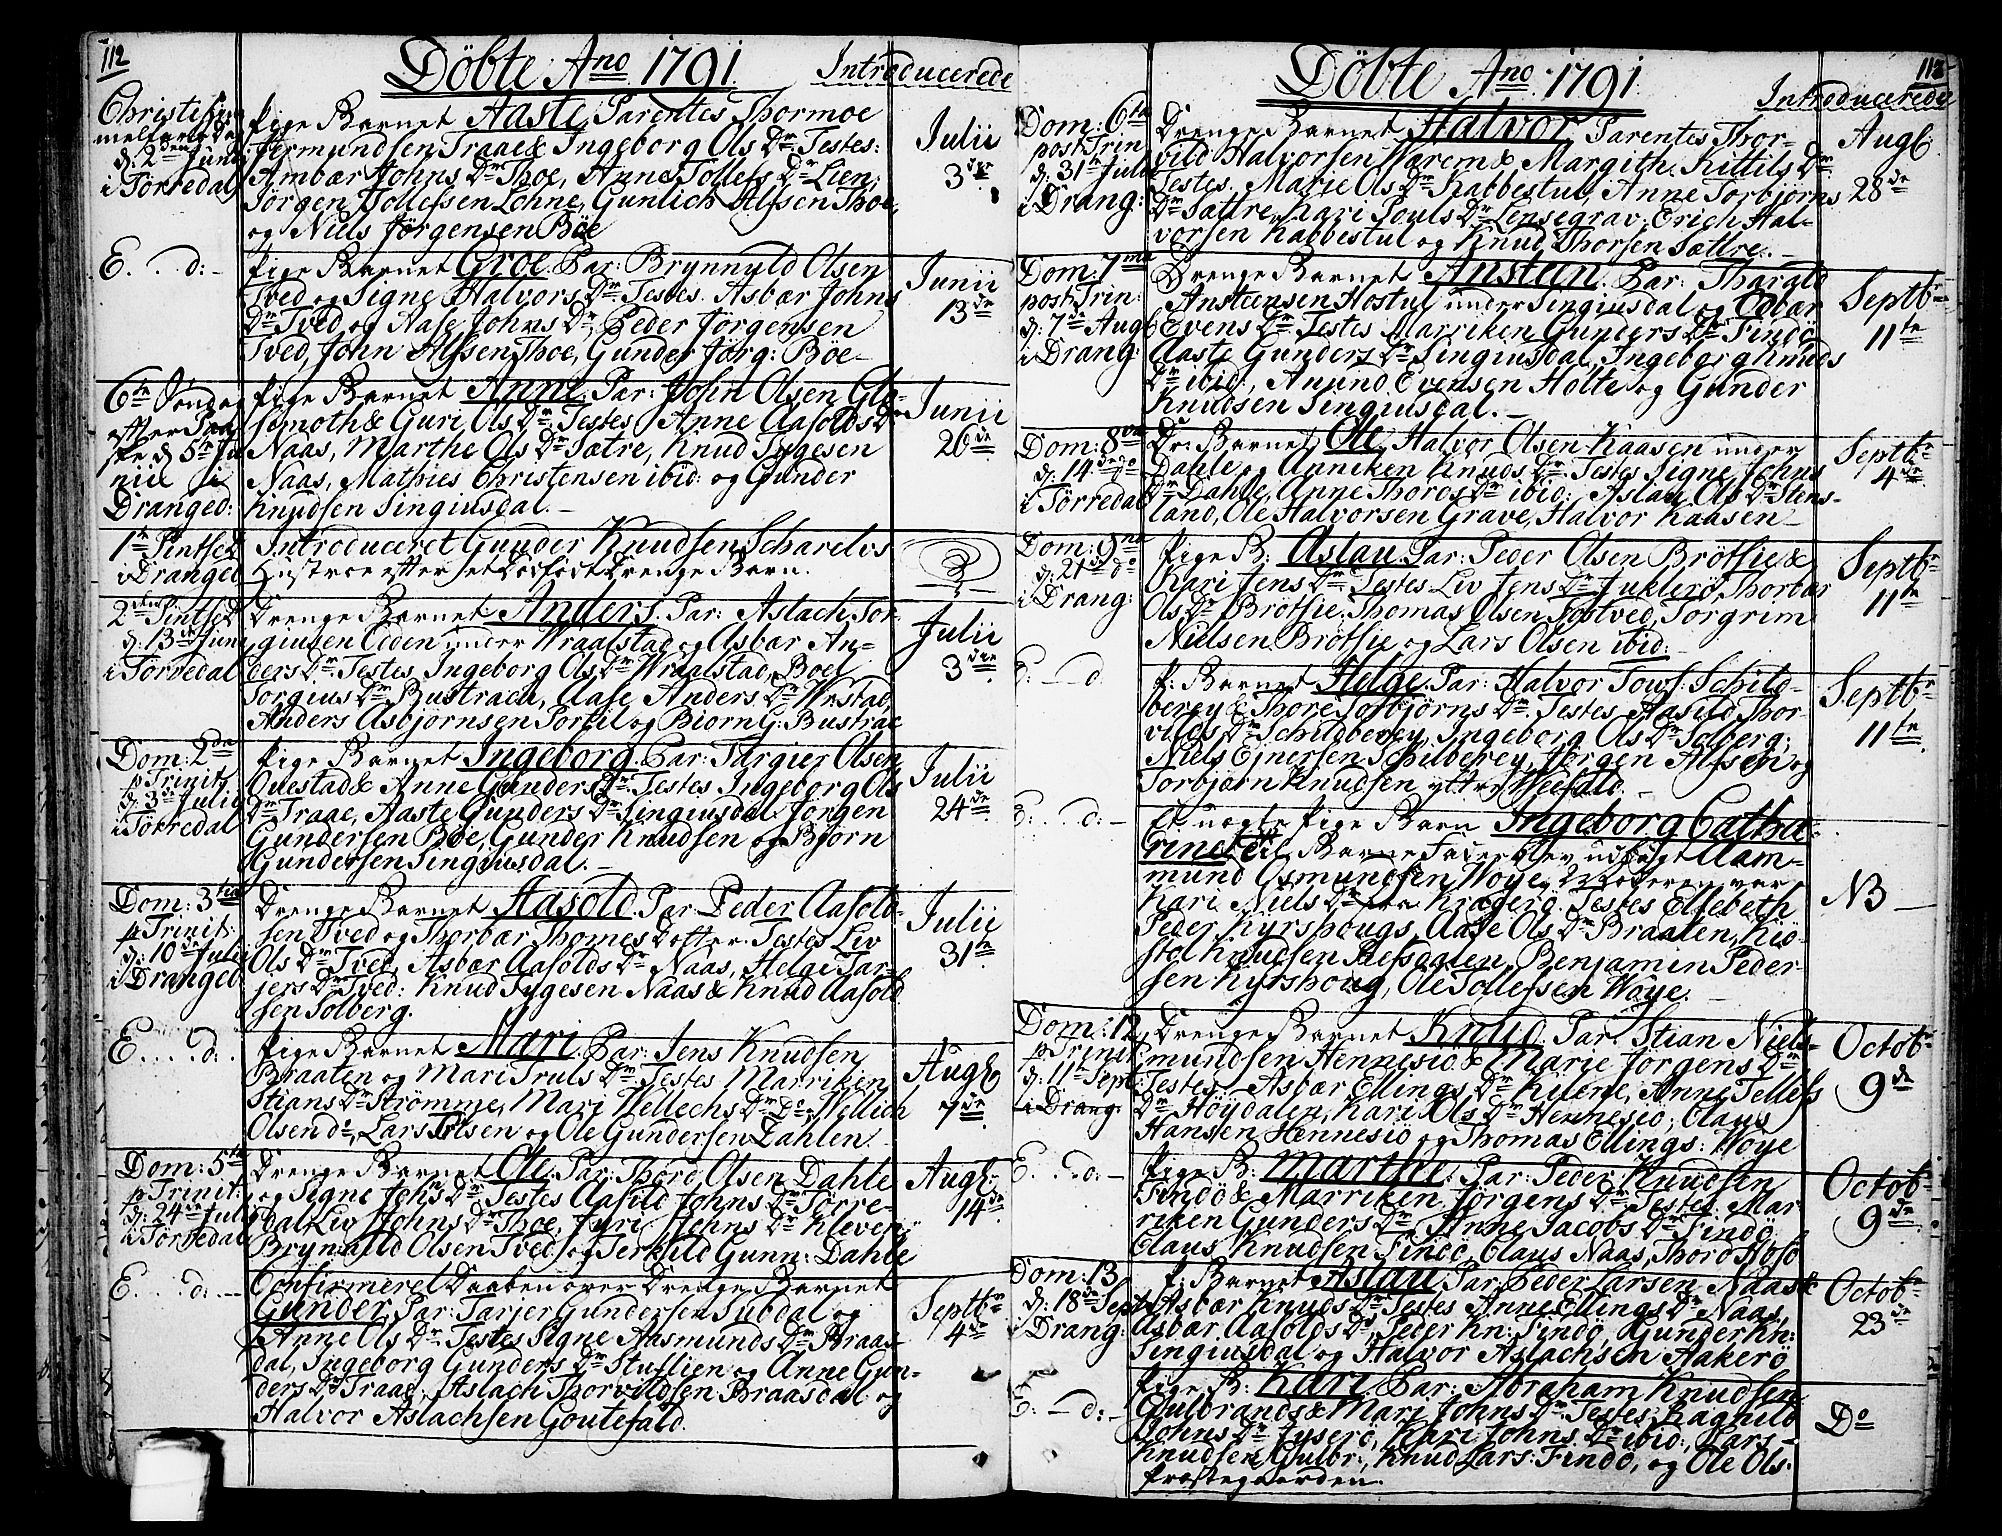 112
Döbte Ano 1791.
Introducerede
Christi Him
melfarts Dag
d: 2den Junii
i Törredal
Pige Barnet Aaste, Parentes Thormoe
Jermundsen Traae & Ingeborg Ols Dr. Testes:
Ambær Johns Dr Thoe, Anne Tollefs Dr Lien,
Jörgen Tollefsen Lohne, Gunlich Alfsen Thoe,
og Niels Jörgensen Böe
Julii
3de
E...d:-
Pige Barnet Groe. Par: Brynnyld Olsen
Tved og Signe Halvors Dr. Testes. Asbær Johns
Dr Tved og Aase Johns Dr, Peder Jörgensen
Tved, John Alfsen Thoe, Gunder Jörg: Böe-
Junii
13de
6te Söndag
efter Paa
ske d 5te Ju
nii i
Dranged:
Pige Barnet Anne. Par: John Olsen
& Guri Ols Dr. Testes Anne Aasolds Dr
Naas, Marthe Ols Dr Sætre, Knud Tygesen
Naas, Mathies Christensen ibid: og Gunder
Knudsen Singiusdal.-
Junii
26de
1te Pintsed
i Dranged
Introduceret Gunder Knudsen
Hustroe efter et dödföd Drenge Barn.
2den Pintsed
d: 13de Junii
i Törredal
Drenge Barnet Anders. Par: Aslach Tor-
giusen Edden under Wraalstad og Asbær An-
ders Dr. Testes Ingeborg Ols Dr Wraalstad, Boel
Torgius Dr Bustrach, Aase Anders Dr
Anders Asbjornsen og Biorn G: Bustrae
Julii
3die
Dom: 2da
p Trinit:
d: 3de Julii
i Törredal
Pige Barnet Ingeborg. Par: Targier Olsen
Ouestad & Anne Gunders Dr. Testes Ingeborg Ols
Dr Traae, Aaste Gunders Dr Singiusdal. Jörgen
Gundersen Böe, Gunder Knudsen og Björn
Gundersen Singiusdal.-
Julii
24de
Dom: 3tia
p Trinit:
d: 10de Julii
i Dranged
Drenge Barnet Aasold. Par Peder Aasold-
sen Tved og Thorbær Thomes dotter. Testes Liv
Ols Dr Tved, Asbær Aasolds Dr Naas, Helge Tar-
jers Dr Tved: Knud Tygesen Naas & Knud Aasold
sen Solberg.
Julii
31te
E....d:.
Pige Barnet Mari. Par: Jens Knudsen
Braaten og Mari Truls Dr. Testes Marriken
Stians Dr Strömme, Mari Wellechs Dr Do, Wellich
Olsen do, Lars Olsen og Ole Gundersen Dahlen
Augl
7de
Dom: 5ta
p Trinit:
d: 24de Julii
i Törredal
Drenge Barnet Ole. Par: Thord Olsen Dahle
og Signe Johs Dr. Testes Aasild Johns Dr Törre-
dal, Liv Johns Dr Thoe, Jyri Johns Dr Kleven,
Brynnild Olsen Tved og Terkild Gunn: Dahle
Augl:
14de
E...d:-
Confirmeret Daaben over Drenge Barnet
Gunder, Par: Tarjer Gundersen Subdal og
Anne Ols Dr. Testes Signe Aasmunds Dr Braas-
dal, Ingeborg Gunders Dr Stuflien og Anne Gun-
ders Dr Traae, Aslach Thorvildsen Braasdal og
Halvor Aslachsen Goutefald.
Septbr
4de
Döbte Ano 1791
113
Introducerede
Dom: 6ta
post Trin
d: 31te Julii
i Drang:
Drenge Barnet Halvor Parentes Thor-
vild Halvorsen Wærem & Margith Kittils Dr.
Testes. Marie Ols Dr Kabbestul, Anne Torbjörns
Dr Sættre, Kari Pouls Dr Lensegrav, Erich Hal-
vorsen Kabbestul og Knud Thorsen Sættre.-
Augl
28de
Dom: 7ma
post Trin:
d: 7de Augl
i Drang
Drenge Barnet Ansteen. Par: Tharald
Ansteensen Hostul under Singiusdal og Edbær
Evens Dr. Testes Marriken Gunders Dr Findö
Aaste Gunders Dr Singiusdal, Ingeborg Knuds
Dr ibid:, Anund Evensen Holte og Gunder
Knudsen Singiusdal.-
Septbr
11te
Dom: 8va
d: 14de do
i Törredal
Dr: Barnet Ole, Halvor Olsen Kaasen under
Dahle og Anniken Knuds Dr. Testes Signe Johns
Dr Dahle, Anne Thords Dr ibid: Aslau Ols Dr Stens-
land, Ole Halvorsen Grave, Halvor Kaasen-
Septbr
4de
Dom: 9na
d: 21de do
i Drang:
Pige B: Aslau. Par: Peder Olsen Brötsie &
Kari Jens Dr. Testes Liv Jens Dr Juklerö, Thorbær
Ols Dr Brötsie. Thomas Olsen Tostved, Torgrim
Nielsen Brötsie og Lars Olsen ibid:
Septbr
11te
E: - d:
P: Barnet Helge. Par: Halvor Tovs: Schild-
berey & Thore Torbjörns Dr. Testes Aasild Thor-
vilds Dr Schildberey, Ingeborg Ols Dr Solberg;
Niels Ejnersen Schilberey, Jörgen Alfsen og
Torbjörn Knudsen yttre Weefald.-
Septbr
11te
E:..d:-
Et uægte Pige Barn Ingeborg Catha
rine. til Barne Fader blev udlagt Aam-
mund Osmundsen Woye, Moderen var
Kari Niels Dr fra Kragerö. Testes Ellebeth
Peder Kyrshougs, Aase Ols Dr Braaten, Kiö-
stol Knudsen Refsdalen, Benjamin Peder-
sen Kyrshoug, Ole Tollefsen Woye.-
NB-
Dom: 12
p Trinit:
d: 11te Sept:
i Drang:
Drenge Barnet Knud. Par. Stian Niels-
mundsen Hennesiö & Marie Jörgens Dr
Testes Asbær Ellings Dr Kilene, Anne Tellefs
Dr Höydalen, Kari Ols Dr Hennesiö, Claus
Hansen Hennesiö og Thomas Ellings: Woye
Octobr
9de
E:..d:-
Pige B: Marthe. Par: Peder Knudsen
Findö & Marriken Jörgens Dr. Testes Mar
riken Gunders Dr, Anne Jacobs Dr Findö
Claus Knudsen Findö, Claus Naas, Thord
Octobr
9de
Dom: 13
d: 18de Sept
i Drang:
P: Barnet Aslau. Par. Peder Larsen Naas &
Asbær Knuds Dr. Testes Anne Ellings Dr Naas,
Asbær Aasolds Dr, Peder Kn: Findö, Gunder Kn:
Singiusdal og Halvor Aslachsen Aakerö
Octobr
23de
E:-d:-
Pige B: Kari. Par: Abraham Knudsen
Gulbrands & Mari Johns Dr. Testes. Ragnild
Johns Dr Tyserö, Kari Johns Dr ibid:, Lars
Knudsen Gulbr:, Knud Lars: Findö, og Ole Ols:
Præstegaarden.
Do